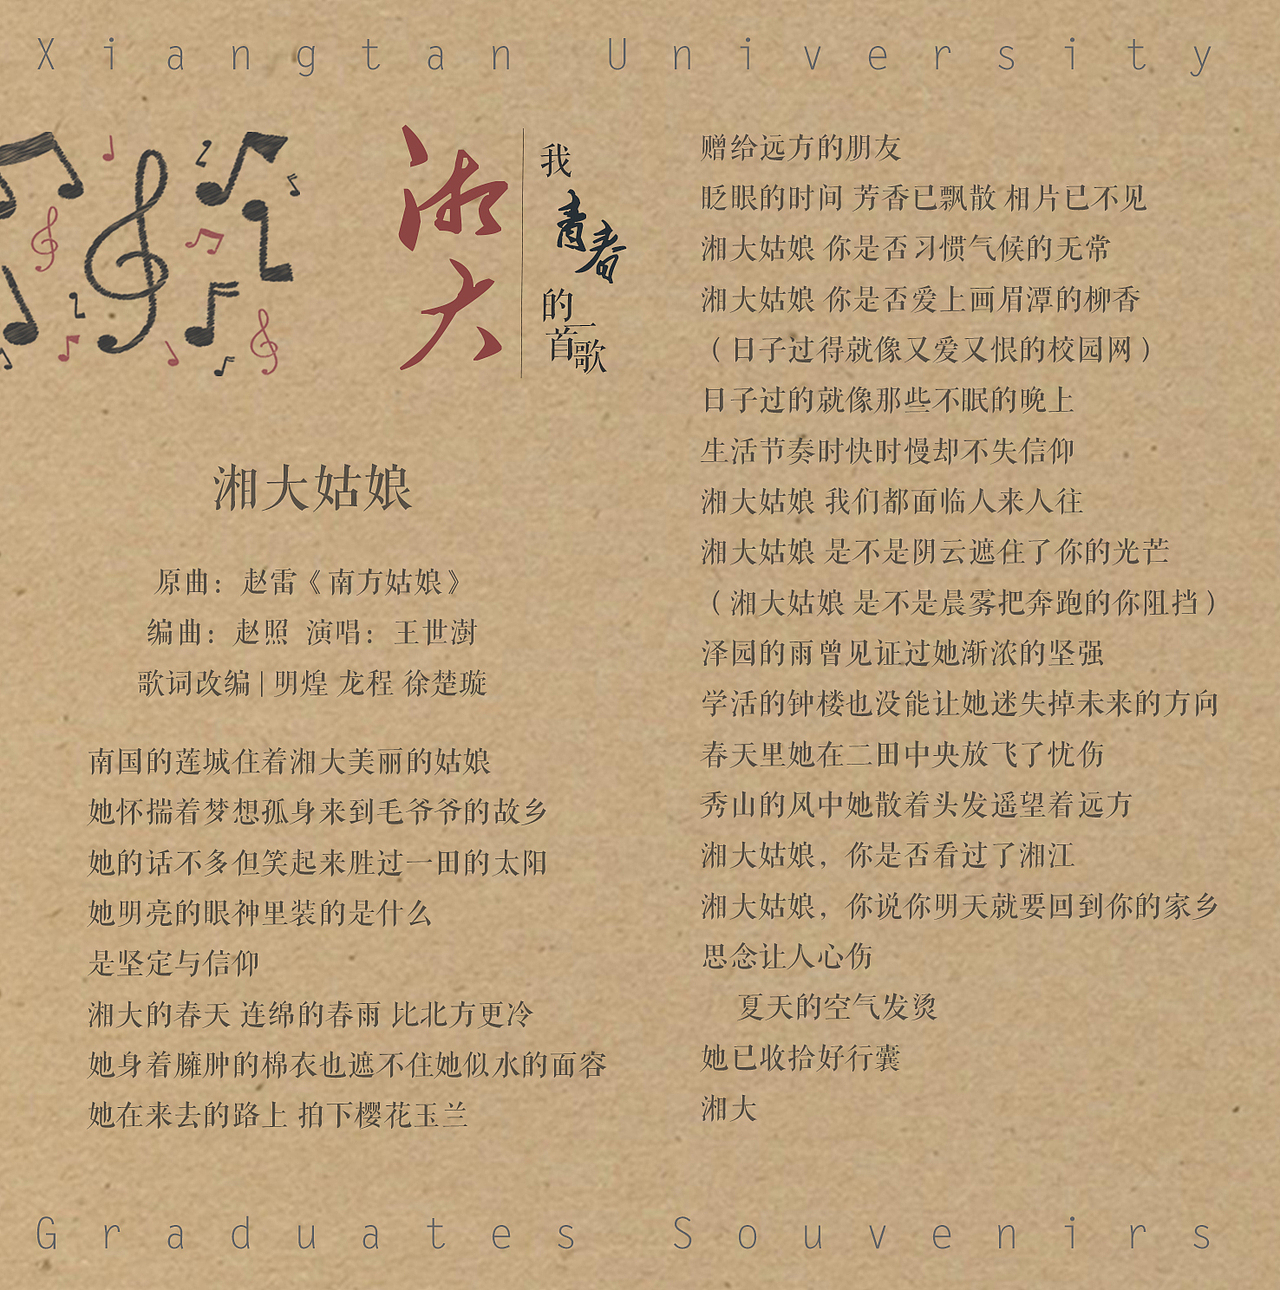 Xiangtan University
湘大
我
青春
的一
首歌
湘大姑娘
原曲：赵雷《南方姑娘》
编曲：赵照 演唱：王世澍
歌词改编 | 明煌 龙程 徐楚璇
南国的莲城住着湘大美丽的姑娘
她怀揣着梦想孤身来到毛爷爷的故乡
她的话不多但笑起来胜过一田的太阳
她明亮的眼神里装的是什么
是坚定与信仰
湘大的春天 连绵的春雨 比北方更冷
她身着臃肿的棉衣也遮不住她似水的面容
她在来去的路上 拍下樱花玉兰
赠给远方的朋友
眨眼的时间 芳香已飘散 相片已不见
湘大姑娘 你是否习惯气候的无常
湘大姑娘 你是否爱上画眉潭的柳香
（日子过得就像又爱又恨的校园网）
日子过的就像那些不眠的晚上
生活节奏时快时慢却不失信仰
湘大姑娘 我们都面临人来人往
湘大姑娘 是不是阴云遮住了你的光芒
（湘大姑娘 是不是晨雾把奔跑的你阻挡）
泽园的雨曾见证过她渐浓的坚强
学活的钟楼也没能让她迷失掉未来的方向
春天里她在二田中央放飞了忧伤
秀山的风中她散着头发遥望着远方
湘大姑娘，你是否看过了湘江
湘大姑娘，你说你明天就要回到你的家乡
思念让人心伤
夏天的空气发烫
她已收拾好行囊
湘大
Graduates Souvenirs